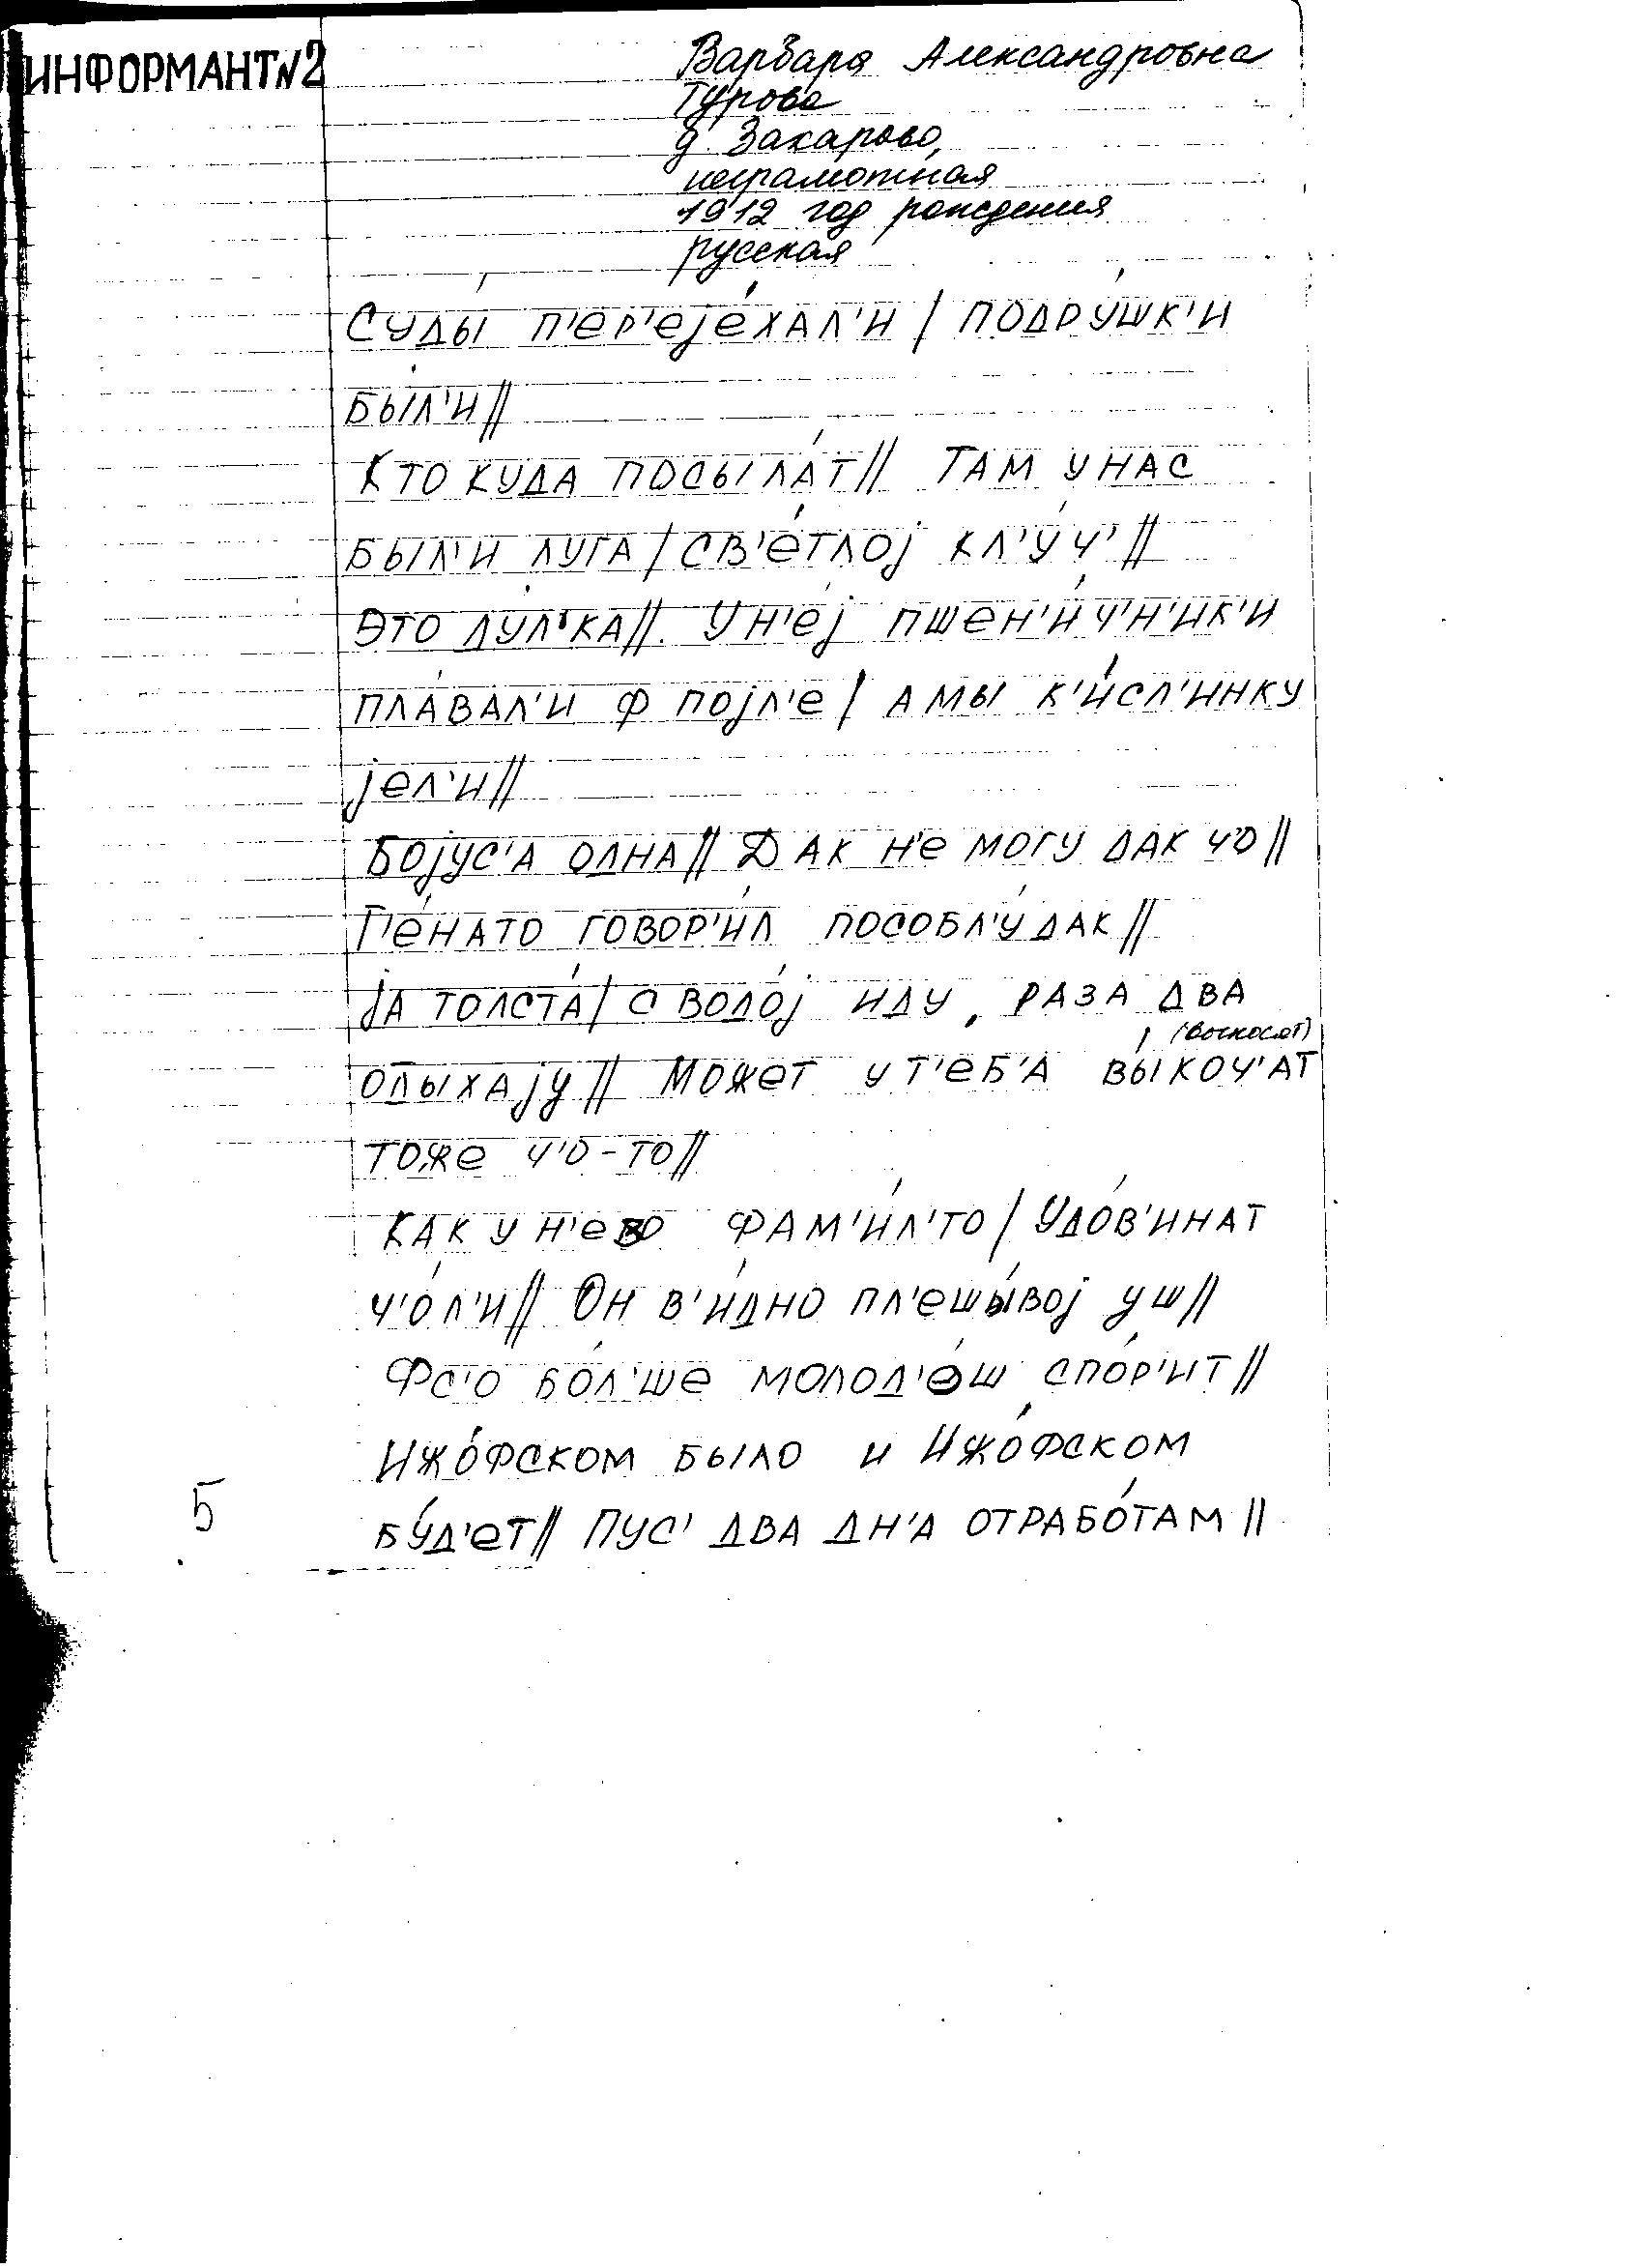 ИНФОРМАНТ №2
Варвара Александровна
Турова
д. Захарово,
неграмотная
1912 год рождения
русская
Суды́ п'ер'еjе́хал'и / подру́шк'и
бы́л'и //
Кто куда посыла́т // Там у нас
был'и луга / св'е́тлоj кл'у́ч' //
Это лул'ка //. У н'еj пшен'и́ч'н'ик'и
пла́вал'и ф поjл'е / а мы к'и́сл'инку
jел'и //
Боjус'а одна // Дак н'е могу дак ч'о //
Г'е́на то говор'и́л пособл'у́ дак //
jа толста́ / с водо́j иду, раза два
одыхаjу // Может у т'еб'а вы́коч'ат
(выкосят)
тоже ч'о-то //
Как у н'ево фам'и́л'то / Удо́в'инат
ч'о́л'и // Он в'и́дно пл'ешы́воj уш //
Фс'о бо́л'ше молод'о́ш спо́р'ит //
Ижо́фском было и Ижо́фском
бу́д'ет // Пус' два дн'а отрабо́там //
5